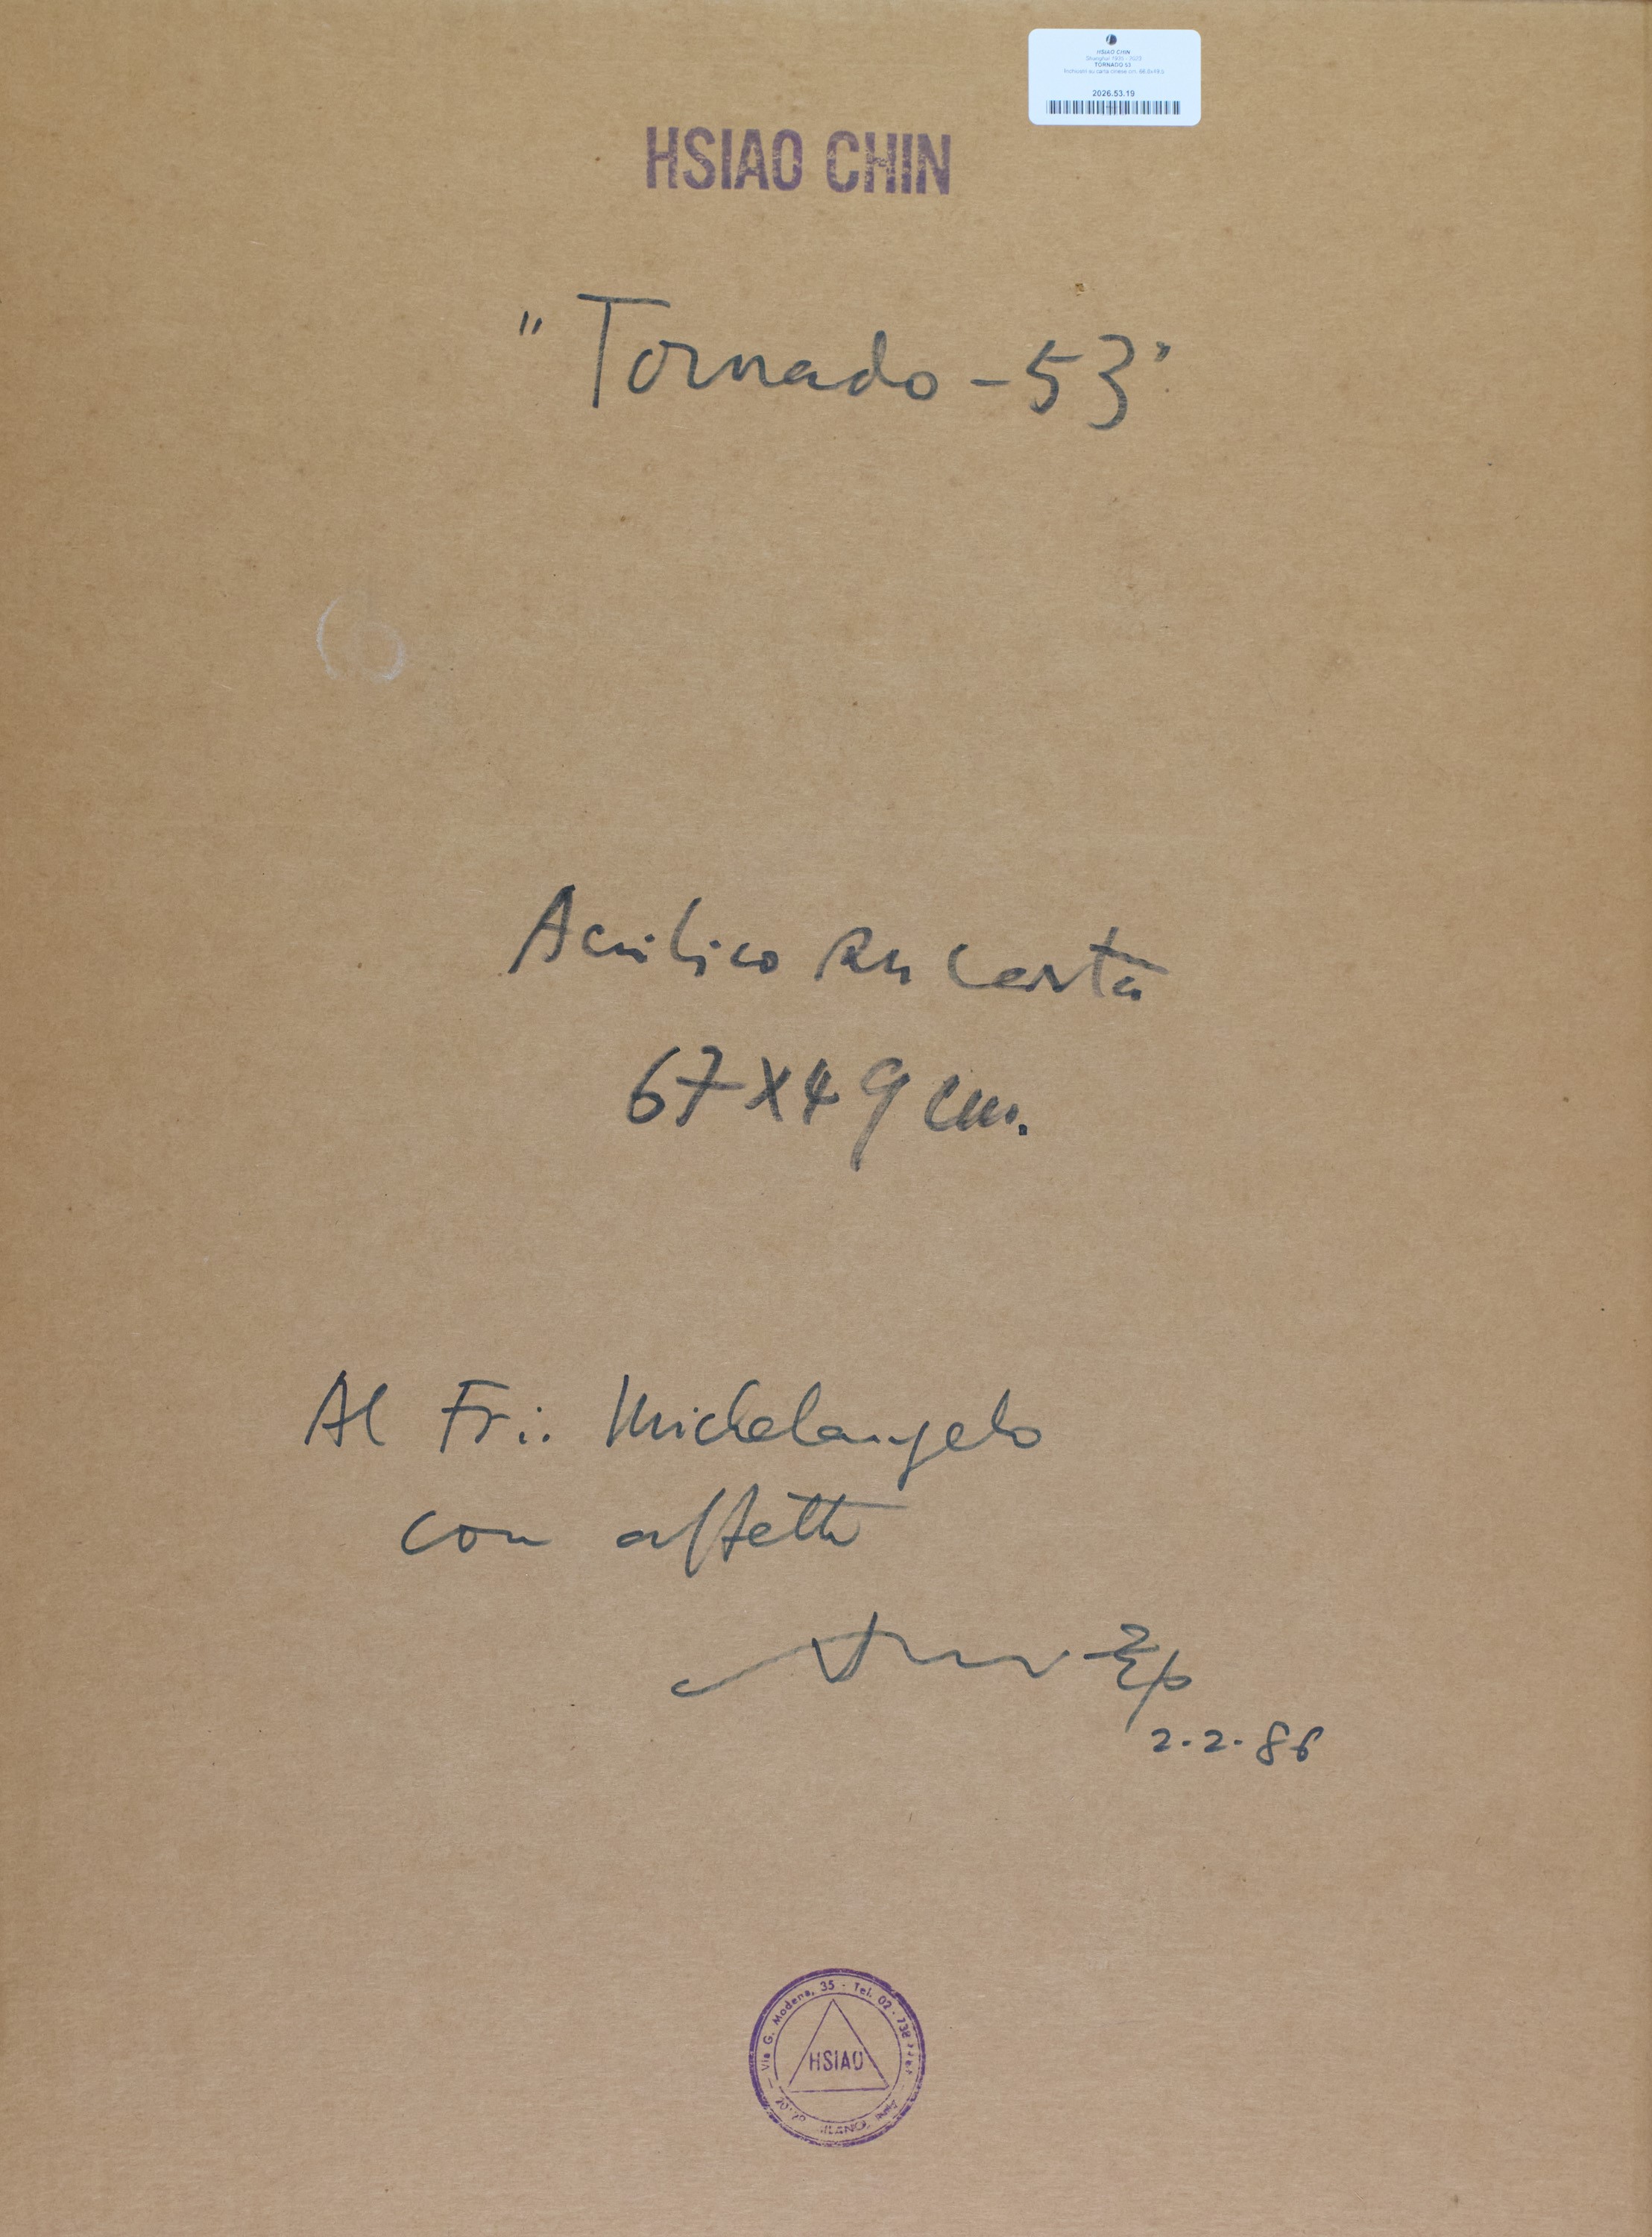 HSIAO CHIN
Shanghai 1935 - 2023
TORNADO 53
Inchiostri su carta cinese cm.
2026.53.19
HSIAO CHIN
"Tornado-53"
Acrilico su carta
67x49 cm.
Al Fr∴ Michelangelo
con affetto
2.2.86
Via G. Modena, 35 - Tel. 02-738
HSIAO
MILANO